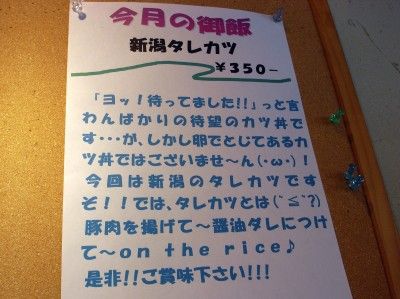 今月の御飯
新潟タレカツ
￥３５０－
「ヨッ！待ってました!!」っと言
わんばかりの待望のカツ丼で
す・・・が、しかし卵でとじてあるカ
ツ丼ではございませ～ん(･ω･)！
今回は新潟のタレカツです
ぞ！！では、タレカツとは(｀≦´?)
豚肉を揚げて～醤油ダレにつけ
て～on the rice♪
是非!!ご賞味下さい!!!